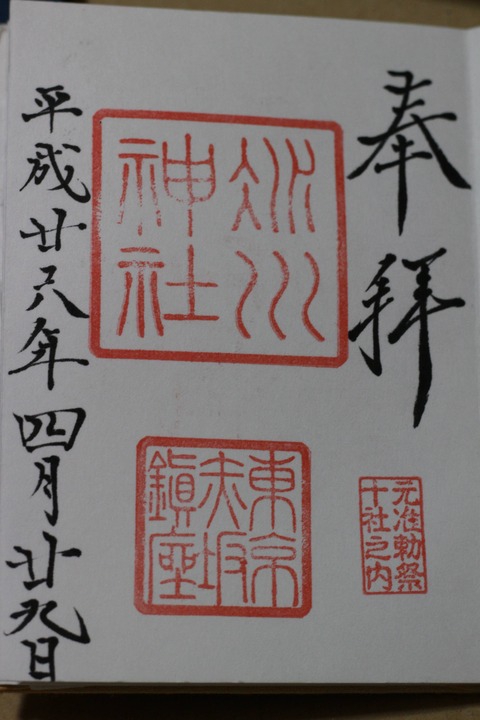 奉拝
元准勅祭
十社之内
氷川
神社
東京
赤坂
鎮座
平成廿八年四月廿九日